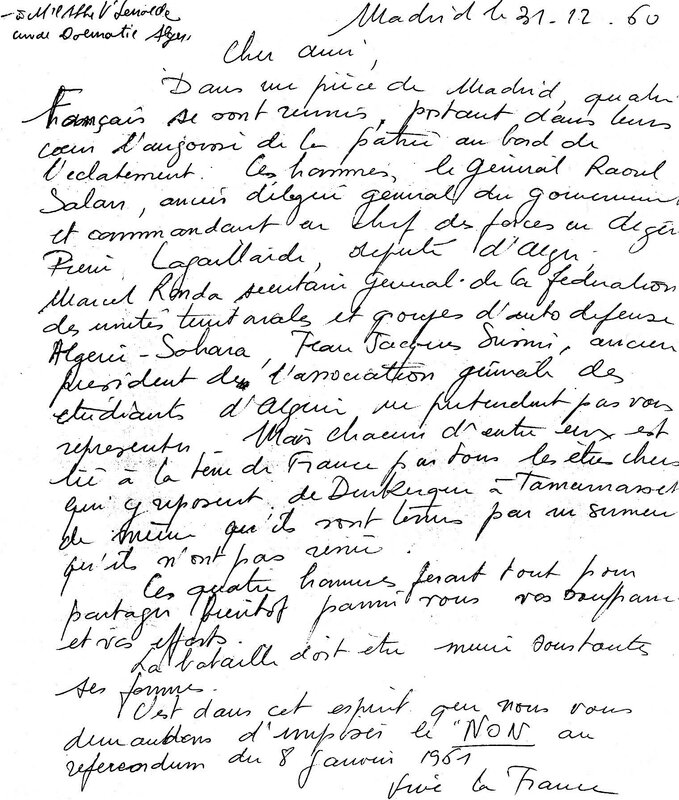 Madrid le 31-12-60
Cher ami,
Dans une pièce de Madrid, quatre
français se sont réunis, portant dans leurs
cœur l'angoisse de la patrie au bord de
l'eclatement. Ces hommes, le Général Raoul
Salan, ancien délégué général du gouvernement
et commandant en chef des forces en Algérie
Pierre Lagaillarde, député d'Alger,
Marcel Ronda secretaire Général de la fédération
des unités territoriales et groupes d'auto defense
Algérie-Sahara, Jean Jacques Susini, ancien
président de l'association générale des
étudiants d'Algérie ne prétendent pas vous
représenter. Mais chacun d'entre eux est
lié à la terre de France par tous les êtres chers
qui y reposent de Dunkerque à Tamanrasset
de même qu'ils sont tenus par un serment
qu'ils n'ont pas renié.
Ces quatre hommes feront tout pour
partager bientôt parmi vous vos souffrances
et vos efforts.
La bataille doit être menée sous toutes
ses formes.
C'est dans cet esprit que nous vous
demandons d'imposer le "NON" au
referendum du 8 Janvier 1961
Vive la France